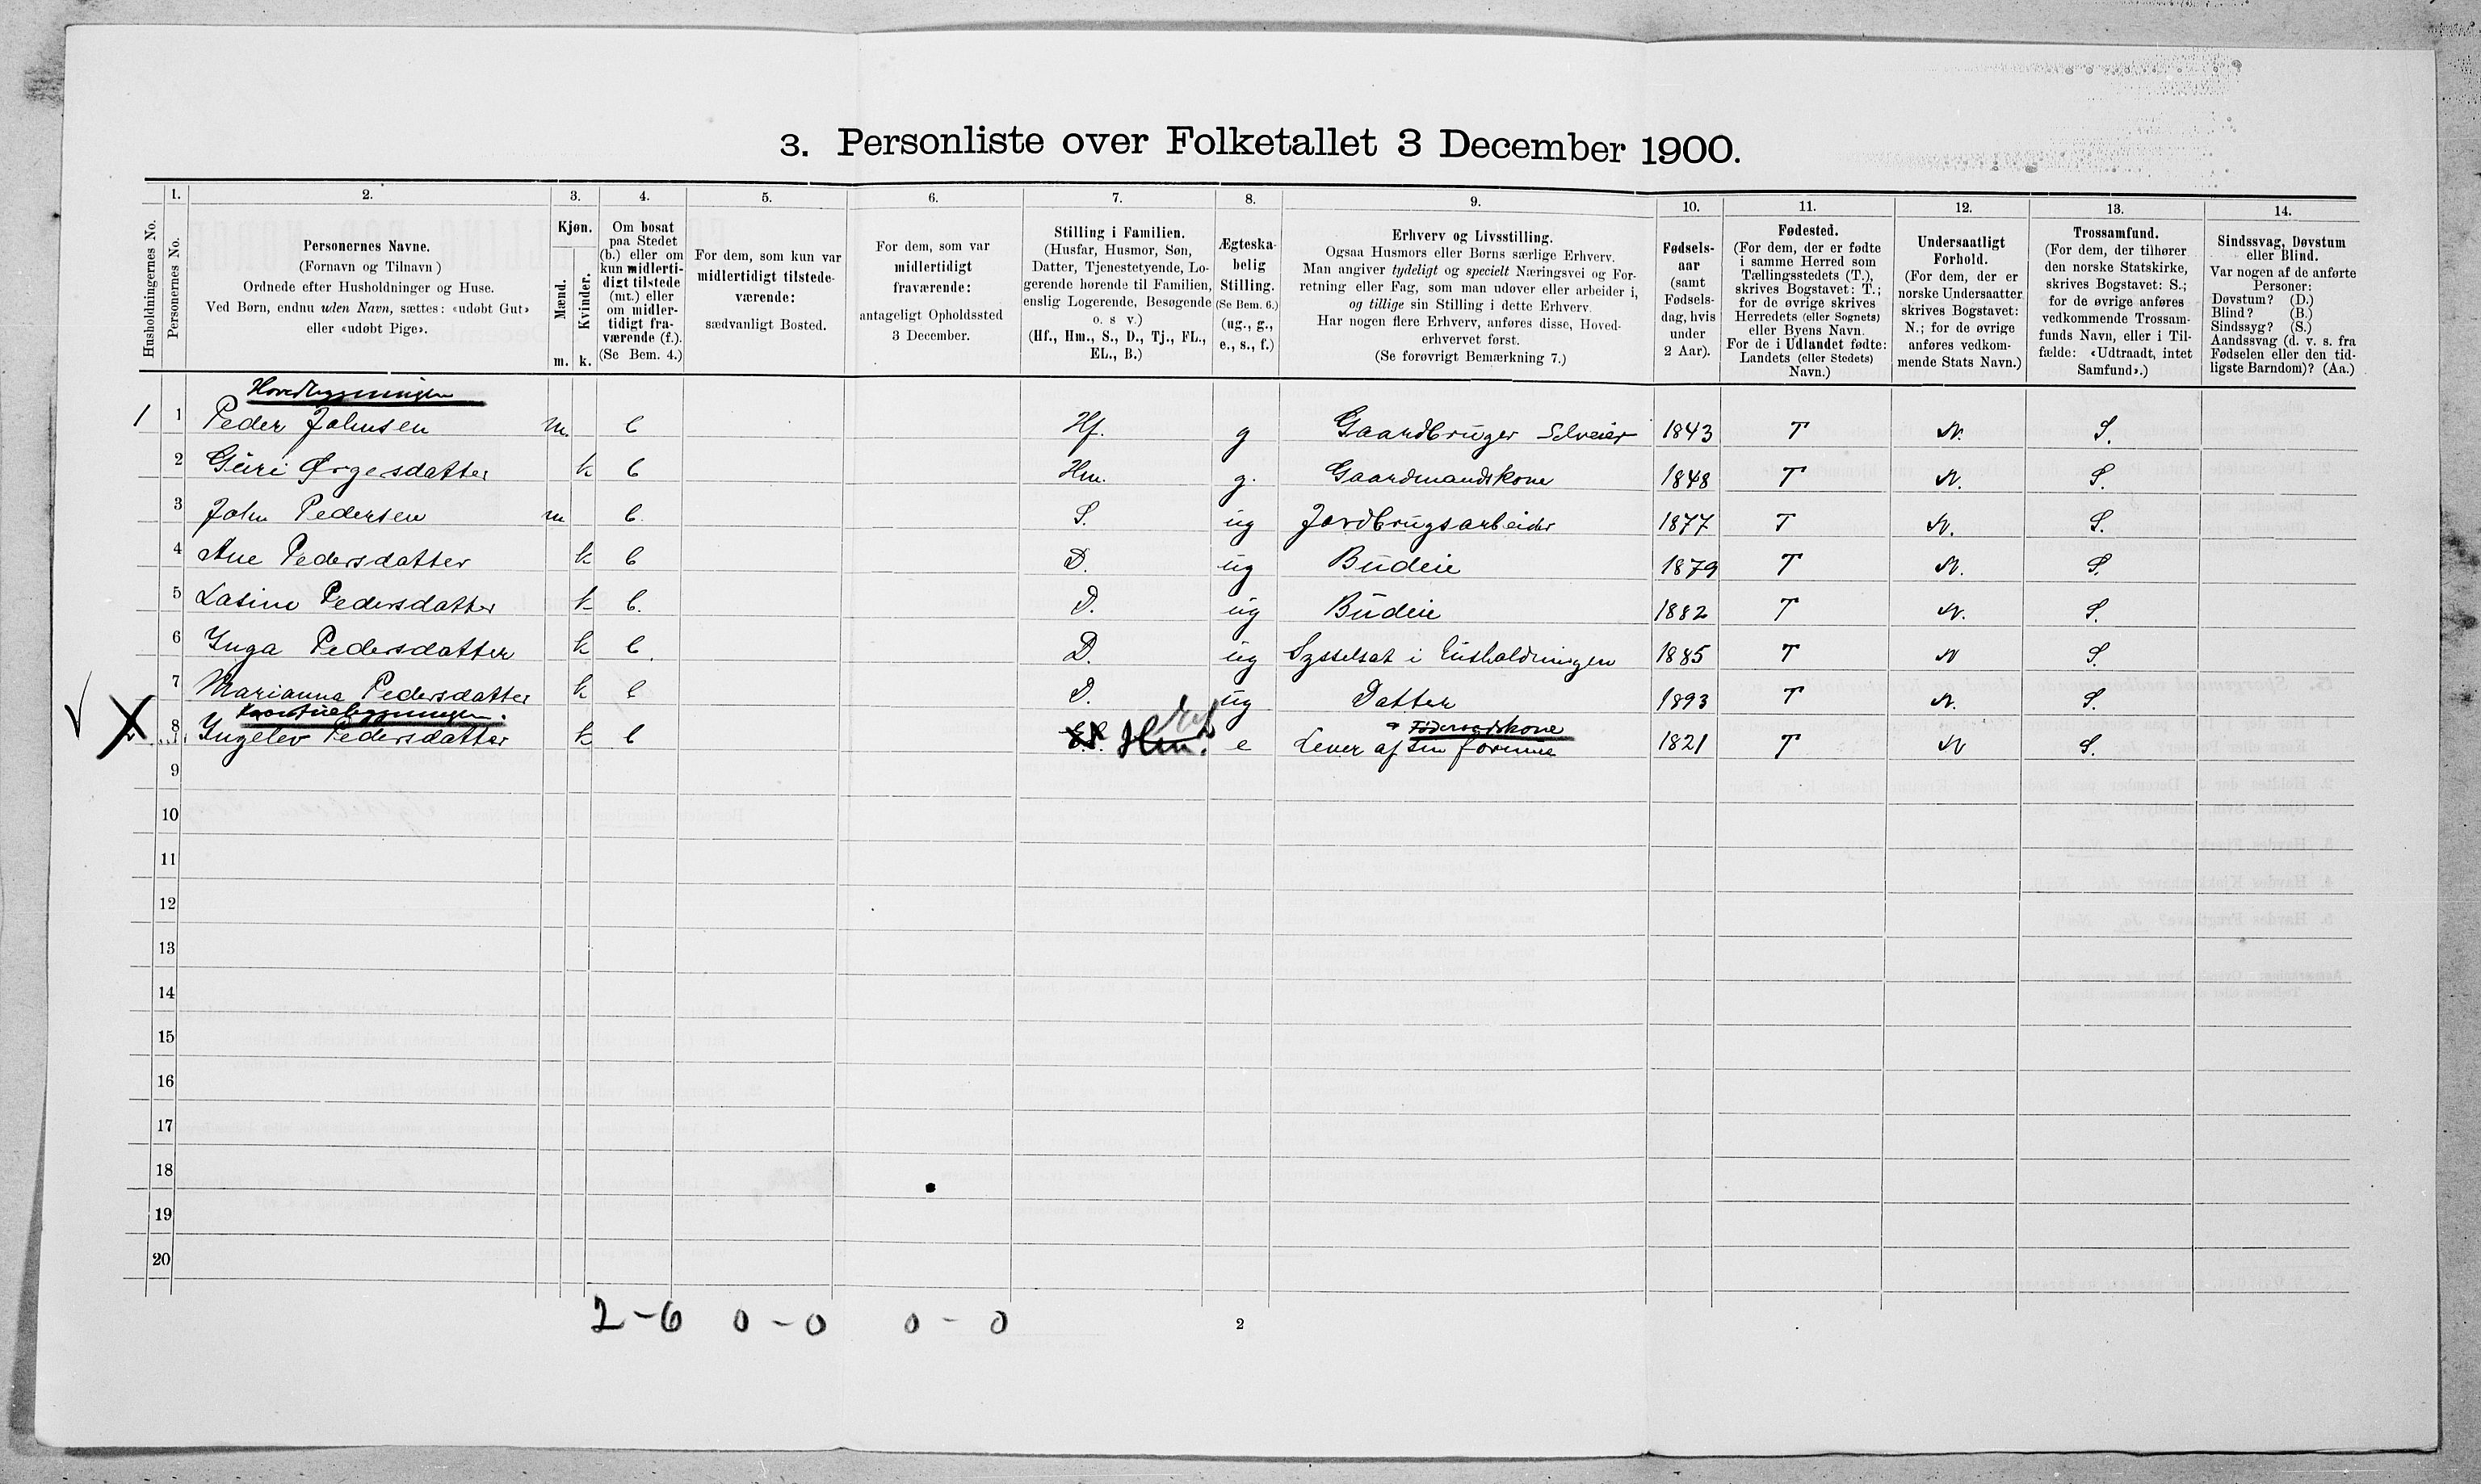 3. Personliste over Folketallet 3 December 1900.
1. 2. 3. 4. 5. 6. 7. 8. 9. 10. 11. 12. 13. 14.
Husholdningernes No.
Personernes No.
Personernes Navne.
(Fornavn og Tilnavn)
Ordnede efter Husholdninger og Huse.
Ved Børn, endnu uden Navn, sættes: «udøbt Gut»
eller «udøbt Pige».
Kjøn.
Mænd.
Kvinder.
m. k.
Om bosat
paa Stedet
(b.) eller om
kun midlerti-
digt tilstede
(mt.) eller
om midler-
tidigt fra-
værende (f.).
(Se Bem. 4.)
For dem, som kun var
midlertidigt tilstede-
værende:
sædvanligt Bosted.
For dem, som var
midlertidigt
fraværende:
antageligt Opholdssted
3 December.
Stilling i Familien.
(Husfar, Husmor, Søn,
Datter, Tjenestetyende, Lo-
gerende hørende til Familien,
enslig Logerende, Besøgende
o. s v.)
(Hf., Hm., S., D., Tj., FL.,
EL., B.)
Ægteska-
belig
Stilling.
(Se Bem. 6.)
(ug., g.,
e., s., f.)
Erhverv og Livsstilling.
Ogsaa Husmors eller Børns særlige Erhverv.
Man angiver tydeligt og specielt Næringsvei og For-
retning eller Fag, som man udøver eller arbeider i,
og tillige sin Stilling i dette Erhverv.
Har nogen flere Erhverv, anføres disse, Hoved-
erhvervet først.
(Se forøvrigt Bemærkning 7.)
Fødsels-
aar
(samt
Fødsels-
dag, hvis
under
2 Aar).
Fødested.
(For dem, der er fødte
i samme Herred som
Tællingsstedets (T.),
skrives Bogstavet: T.;
for de øvrige skrives
Herredets (eller Sognets)
eller Byens Navn.
For de i Udlandet fødte:
Landets (eller Stedets)
Navn.)
Undersaatligt
Forhold.
(For dem, der er
norske Undersaatter
skrives Bogstavet:
N.; for de øvrige
anføres vedkom-
mende Stats Navn.)
Trossamfund.
(For dem, der tilhører
den norske Statskirke,
skrives Bogstavet: S.;
for de øvrige anføres
vedkommende Trossam-
funds Navn, eller i Til-
fælde: «Udtraadt, intet
Samfund».)
Sindssvag, Døvstum
eller Blind.
Var nogen af de anførte
Personer:
Døvstum? (D.)
Blind? (B.)
Sindssyg? (S.)
Aandssvag (d. v. s. fra
Fødselen eller den tid-
ligste Barndom)? (Aa.)
Hovedbygningen
1 1 Peder Johnsen m. b Hf. g Gaardbruger Selveier 1843 T N. S.
2 Guri Ørgesdatter k b Hm. g. Gaardmandskone 1848 T N. S.
3 John Pedersen m b. S. ug Jordbrugsarbeider 1877 T N. S.
4 Ane Pedersdatter k b D. ug Budeie 1879 T N. S.
5 Lasine Pedersdatter k b. D. ug Budeie 1882 T N. S.
6 Inga Pedersdatter k b. D. ug Sysselsat i Husholdningen 1885 T N S.
7 Marianna Pedersdatter k b D. ug Datter 1893 T N. S.
Føderaadskone
8 Ingelev Pedersdatter k b Hm. e Lever af sin formue 1821 T N S.
9
10
11
12
13
14
15
16
17
18
19
20
2-6 0-0 0-0
2